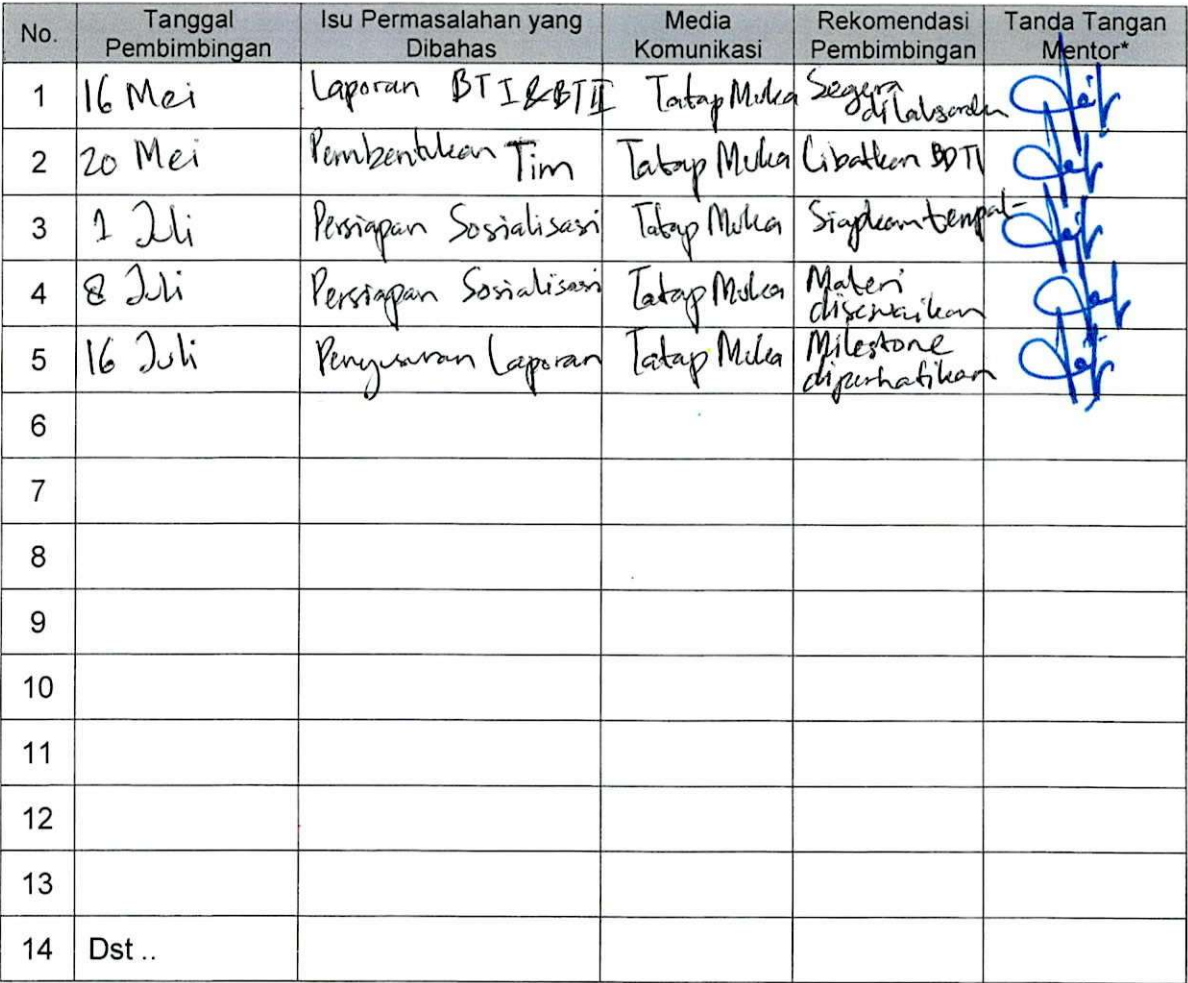 No. Tanggal Pembimbingan Isu Permasalahan yang Dibahas Media Komunikasi Rekomendasi Pembimbingan Tanda Tangan Mentor*
1 16 Mei Laporan BT I & BT II Tatap Muka Segera dilaksanakan
2 20 Mei Pembentukan Tim Tatap Muka Libatkan BDTI
3 1 Juli Persiapan Sosialisasi Tatap Muka Siapkan tempat
4 8 Juli Persiapan Sosialisasi Tatap Muka Materi disesuaikan
5 16 Juli Penyusunan Laporan Tatap Muka Milestone diperhatikan
6
7
8
9
10
11
12
13
14 Dst ..